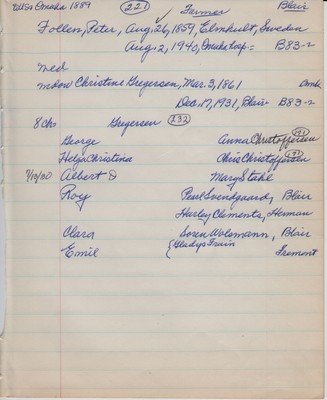 to USA Omaha 1889 (221) Farmer Blair
Follen, Peter, Aug. 26, 1859, Elmhult, Sweden
Aug 2, 1940, Omaha hosp - B83-2
Wed
Christine Gregersen, Mar. 3, 1861
Dec. 17, 1931, Blair B83-2
8 chs Gregersen (232)
George Anna Christoffersen (191)
Helja Christina Chris Christoffersen (191)
Albert D Mary Stahl
Roy Pearl Svendgaard, Blair
Harley Clements, Herman
Clara Soren Walsmann, Blair
Emil { Gladys Train
Fremont